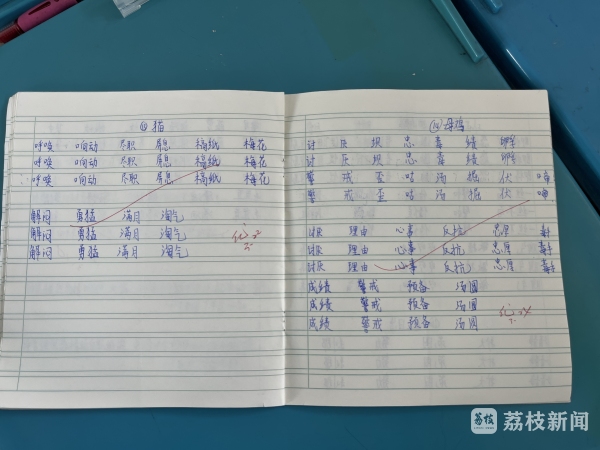 ⑬猫
呼唤 响动 尽职 屏息 稿纸 梅花
呼唤 响动 尽职 屏息 稿纸 梅花
呼唤 响动 尽职 屏息 稿纸 梅花
解闷 勇猛 满月 淘气
解闷 勇猛 满月 淘气
解闷 勇猛 满月 淘气
⑭母鸡
讨 厌 坝 忠 毒 绩 孵
讨 厌 坝 忠 毒 绩 孵
警 戒 歪 咕 汤 掘 伏 啼
警 戒 歪 咕 汤 掘 伏 啼
讨厌 理由 心事 反抗 忠厚 毒
讨厌 理由 心事 反抗 忠厚 毒
讨厌 理由 心事 反抗 忠厚 毒
成绩 警戒 预备 汤圆
成绩 警戒 预备 汤圆
成绩 警戒 预备 汤圆
荔枝 荔枝新闻